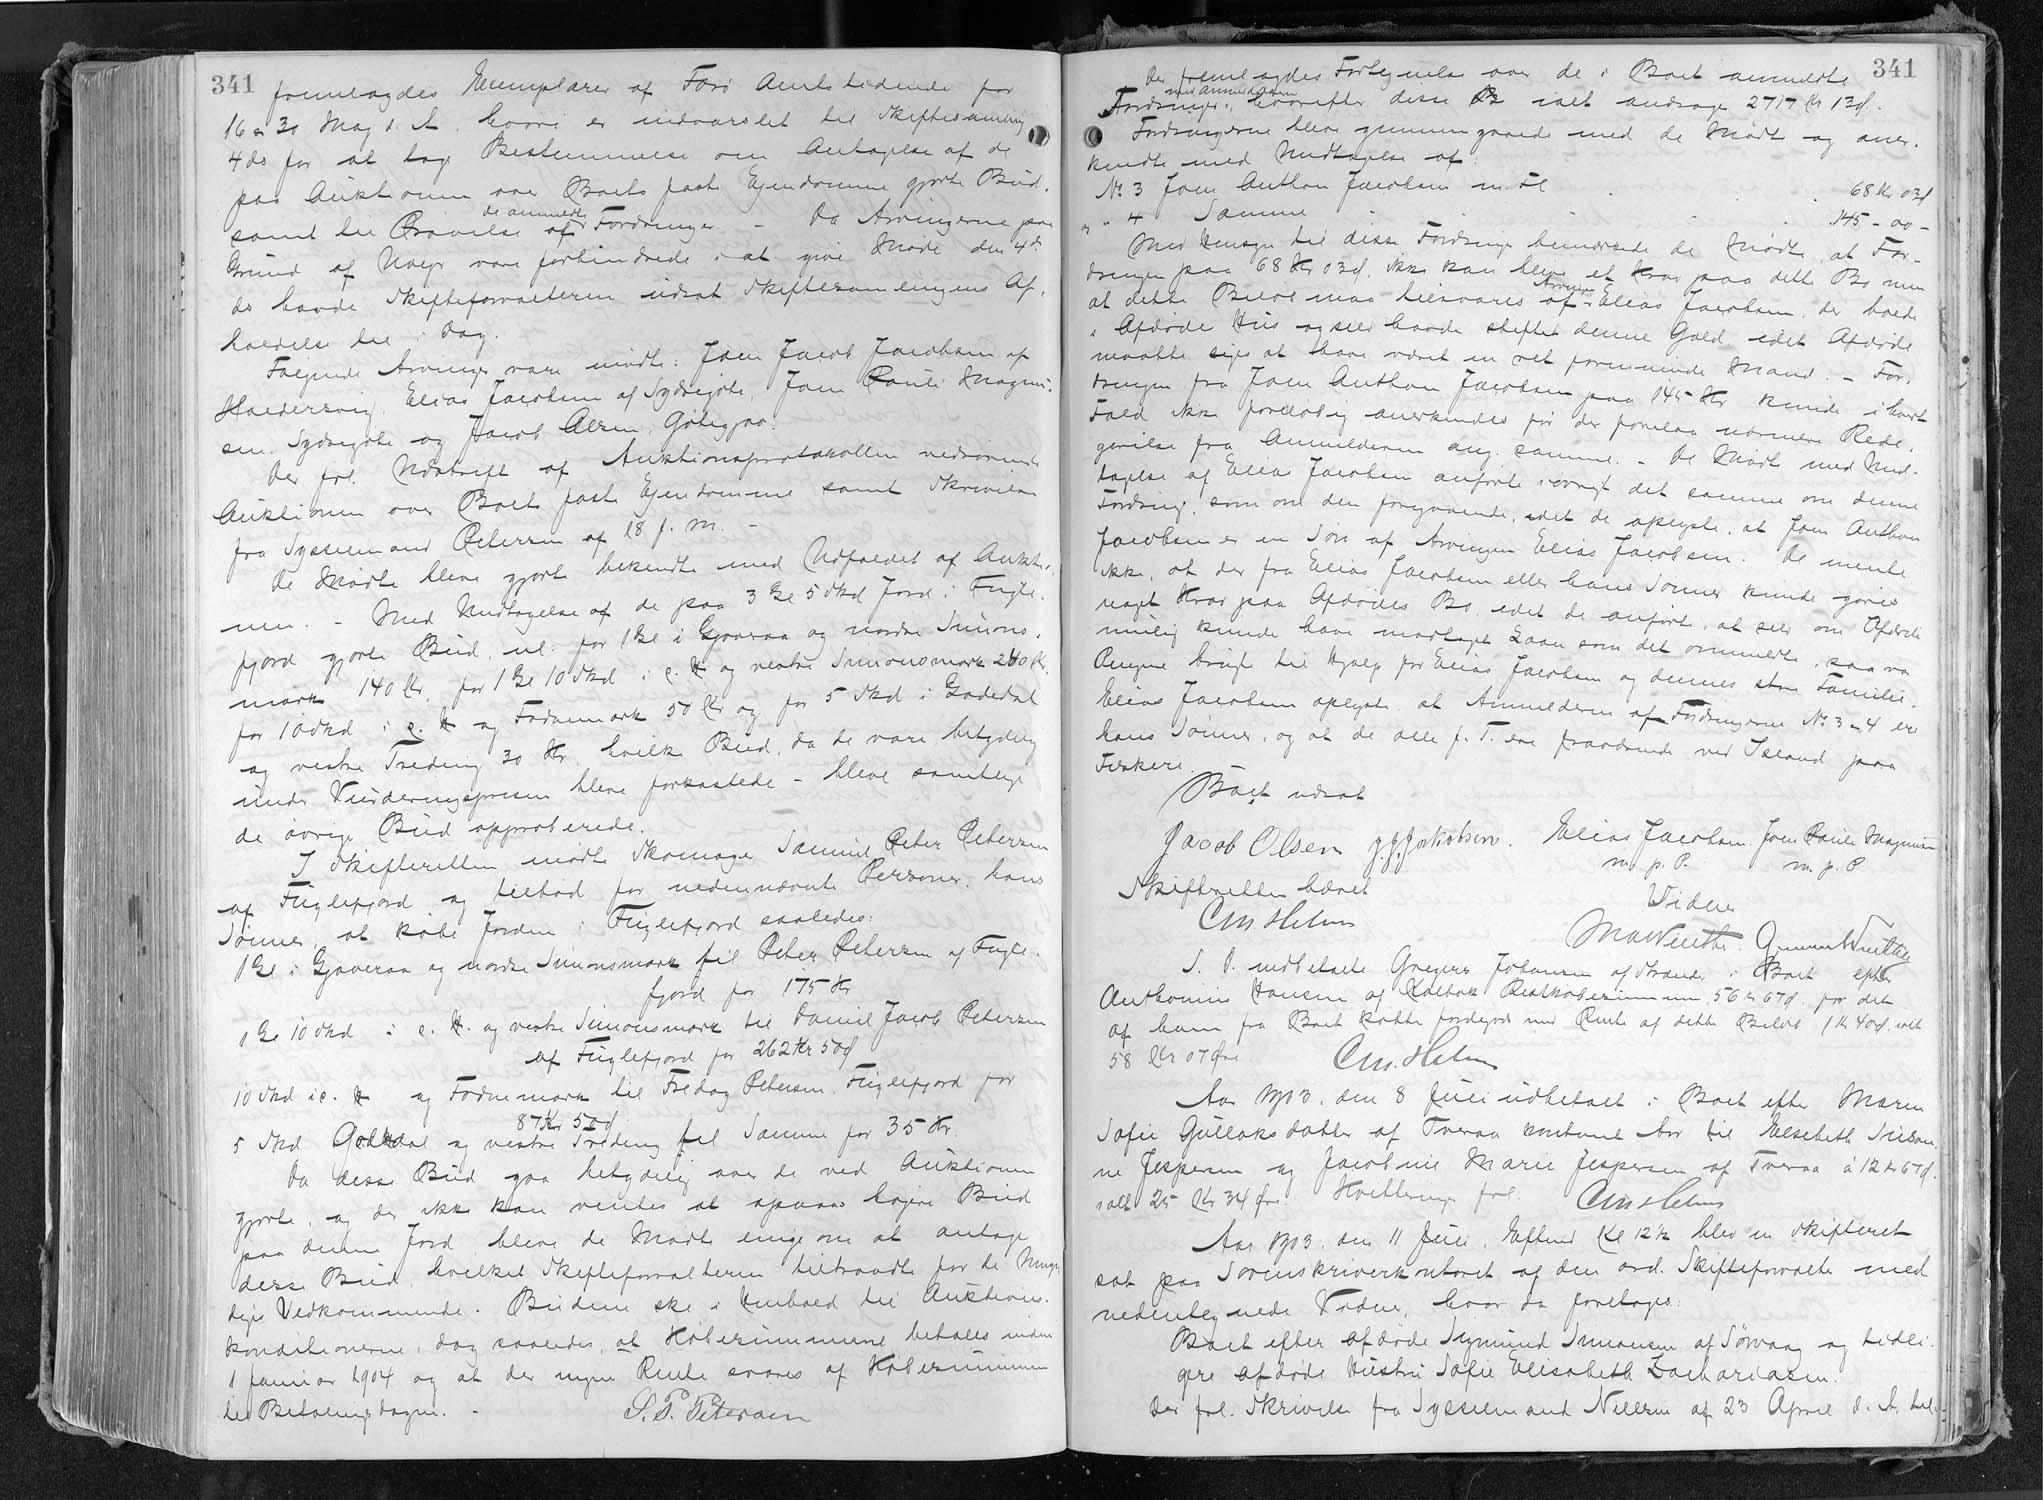 341
fremlagdes Exemplarer af Færø Amtstidende for
16 & 30 Maj d. A. hvori er indvarslet til Skiftesamling
4 ds for at tage Bestemmelse om Antagelse af de
paa Auktionen over Boets faste Ejendomme gjorte Bud,
samt til Prøvelse af de anmeldte Fordringer - Da Arvingerne paa
Grund af Uvejr vare forhindrede i at give Møde den 4de
ds havde Skifteforvalteren udsat Skiftesamlingens Af-
holdelse til i Dag.
Følgende Arvinger vare mødte: Joen Jacob Jacobsen af
Haldersvig, Elias Jacobsen af Sydregøte, Joen Pauli Magnus-
sen, Sydregøte og Jacob Olsen, Gøtegjov.
Der frl. Udskrift af Auktionsprotokollen vedrørende
Auktionen over Boets faste Ejendomme samt Skrivelse
fra Sysselmand Petersen af 18 f. M. -
De Mødte bleve gjort bekendte med Udfaldet af Auktio-
nen. - Med Undtagelse af de paa 3 Gl 5 Skd Jord i Fugle-
fjord gjorte Bud, nl: for 1 Gl i Gjoveraa og nordre Simons-
mark 140 Kr, for 1 Gl 10 Skd i s. St. og vestre Simonsmark 240 Kr,
for 10 Skd i s. St. og Fodnemark 50 Kr og for 5 Skd i Gødedal
og vestre Treding 30 Kr, hvilke Bud, da de vare betydelig
under Vurderingsprisen bleve forkastede - bleve samtlige
de øvrige Bud approberede.
I Skifteretten mødte Skomager Samuel Peter Petersen
af Fuglefjord og tilbød for nedennævnte Personer, hans
Sønner, at købe Jorden i Fuglefjord saaledes:
1 Gl i Gjoveraa og nordre Simonsmark til Peter Petersen af Fugle-
fjord for 175 Kr
1 Gl 10 Skd i s. St. og vestre Simonsmark til Daniel Jacob Petersen
af Fuglefjord for 262 Kr 50 Ø
10 Skd i s. St. og Fodnemark til Fredag Petersen Fuglefjord for
87 Kr 50 Ø
5 Skd Gødedal og vestre Treding til Samme for 35 Kr.
Da disse Bud gaa betydelig over de ved Auktionen
gjorte, og der ikke kan ventes at opnaas højere Bud
paa denne Jord bleve de Mødte enige om at antage
disse Bud, hvilket Skifteforvalteren tiltraadte for de Umyn-
diges Vedkommende. Budene ske i Henhold til Auktions-
konditionerne i Dag saaledes, at Købesummerne betales inden
1 Januar 1904 og at der ingen Rente svares af Købesummen
til Betalingsdagen. -
S. P. Petersen
341
Der fremlagdes Fortegnelse over de i Boet anmeldte
Fordringer, hvorefter disse ialt andrage 2717 Kr 13 Ø.
Fordringerne bleve gennemgaaede med de Mødte og aner-
kendte med Undtagelse af:
No 3 Joen Anthon Jacobsen m. Fl. . . . 68 Kr 03 Ø
og " 4 Samme . . . . 145 - 00 -
Med Hensyn til disse Fordringer bemærkede de Mødte, at For-
dringen paa 68 Kr 03 Ø. ikke kan blive et Krav paa dette Bo men
at dette Beløb maa tilsvares af Arvingen Elias Jacobsen, der boede
i Afdødes Hus og selv havde stiftet denne Gæld idet Afdøde
maatte siges at have været en ret formuende Mand. - For-
dringen fra Joen Anthon Jacobsen paa 145 Kr kunde i hvert
Fald ikke foreløbig anerkendes før der forelaa nærmere Rede-
gørelse fra Anmelderen ang. samme. - De Mødte med Und-
tagelse af Elias Jacobsen anførte iøvrigt det samme om denne
Fordring, som om den foregaaende, idet de oplyste, at Joen Anthon
Jacobsen er en Søn af Arvingen Elias Jacobsen. De mente
ikke, at der fra Elias Jacobsen eller hans Sønner kunde gøres
noget Krav paa Afdødes Bo, idet de anførte, at selv om Afdøde
mulig kunde have modtaget Laan som det ommeldte, saa var
Pengene brugt til Hjælp for Elias Jacobsen og dennes store Familie.
Elias Jacobsen oplyste at Anmelderen af Fordringerne No 3 - 4 ere
hans Sønner, og at de alle p. T. ere fraværende ved Island paa
Fiskeri.
Boet udsat
Jacob Olsen J.J. Jakobsen. Elias Jacobsen Joen Pauli Magnussen
m. p. P. m. p. P
Skifteretten hævet
Vidner
S. D. indbetalte Gregers Johansen af Strænder i Boet efter
Anthonius Hansen af Kolbak Restkøbesummen 56 Kr 67 Ø. for det
af ham fra Boet købte Jordegods med Rente af dette Beløb 1 Kr 40 Ø. ialt
58 Kr 07 Øre.
Aar 1903, den 8 Juli udbetalt i Boet efter Maren
Sofie Gullaksdatter af Tveraa kontant Arv til Elsebeth Susan-
ne Jespersen og Jacobine Marie Jespersen af Tveraa á 12 Kr 67 Ø.
ialt 25 Kr 34 Øre. Kvitteringer frl.
Aar 1903, den 11 Juli, Eftmd Kl 12½ blev en Skifteret
sat paa Sorenskriverkontoret af den ord. Skifteforvalter med
nedentegnede Vidner, hvor da foretoges:
Boet efter afdøde Sigmund Simonsen af Sørvaag og tidli-
gere afdøde Hustru Sofie Elisabeth Zachariasen.
Der frl. Skrivelse fra Sysselmand Nielsen af 23 April d. A. til-